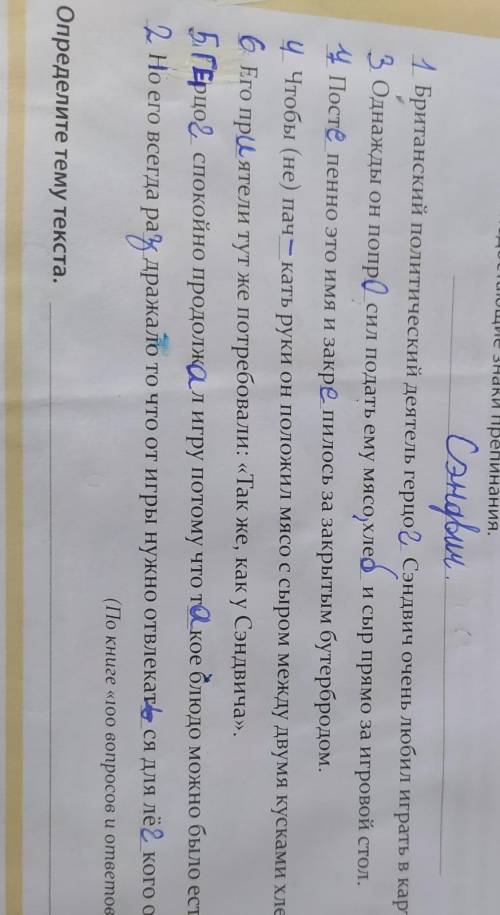 знаки препинания.
Сэндвич.
1 Британский политический деятель герцог Сэндвич очень любил играть в кар
3 Однажды он попросил подать ему мясо, хлеб и сыр прямо за игровой стол.
Постепенно это имя и закрепилось за закрытым бутербродом.
4 Чтобы (не) пач-кать руки он положил мясо с сыром между двумя кусками хле
6 Его приятели тут же потребовали: «Так же, как у Сэндвича».
5. ГЕрцог спокойно продолжал игру потому что такое блюдо можно было ест
2 Но его всегда раздражало то что от игры нужно отвлекаться для лёгкого о
(По книге «100 вопросов и ответов
Определите тему текста.